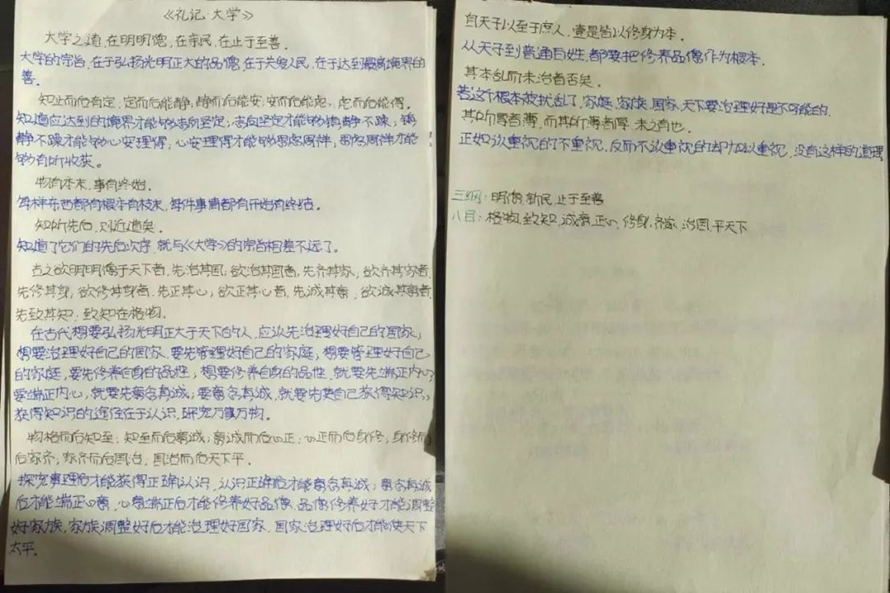 《礼记·大学》
大学之道,在明明德,在亲民,在止于至善。
大学的宗旨,在于弘扬光明正大的品德,在于关爱人民,在于达到最高境界的
善。
知止而后有定,定而后能静,静而后能安,安而后能虑,虑而后能得。
知道应达到的境界才能够志向坚定;志向坚定才能够镇静不躁;镇
静不躁才能够心安理得;心安理得才能够思虑周祥;思虑周祥才能
够有所收获。
物有本末,事有终始。
每样东西都有根本有枝末,每件事情都有开始有终结。
知所先后,则近道矣。
知道了它们的先后次序,就与《大学》的宗旨相差不远了。
古之欲明明德于天下者,先治其国;欲治其国者,先齐其家;欲齐其家者,
先修其身;欲修其身者,先正其心;欲正其心者,先诚其意;欲诚其意者,
先致其知;致知在格物。
在古代想要弘扬光明正大于天下的人,应该先治理好自己的国家;
想要治理好自己的国家,要先管理好自己的家庭;想要管理好自己
的家庭,要先修养自身的品性;想要修养自身的品性,就要先端正内心;
要端正内心,就要先意念真诚;要意念真诚,就要先使自己获得知识;
获得知识的途径在于认识,研究万事万物。
物格而后知至;知至而后意诚;意诚而后心正;心正而后身修;身修而
后家齐;家齐而后国治;国治而后天下平。
探究事理后才能获得正确认识,认识正确后才能意念真诚;意念真诚
后才能端正心意,心意端正后才能修养好品德,品德修养好才能调整
好家族,家族调整好后才能治理好国家,国家治理好后才能使天下
太平。
自天子以至于庶人,壹是皆以修身为本。
从天子到普通百姓,都要把修养品德作为根本。
其本乱而末治者否矣。
若这个根本被扰乱了,家庭,家族,国家,天下要治理好是不可能的。
其所厚者薄,而其所薄者厚,未之有也。
正如该重视的不重视,反而不该重视的却加以重视,没有这样的道理
三纲:明德,新民,止于至善
八目:格物,致知,诚意,正心,修身,齐家,治国,平天下